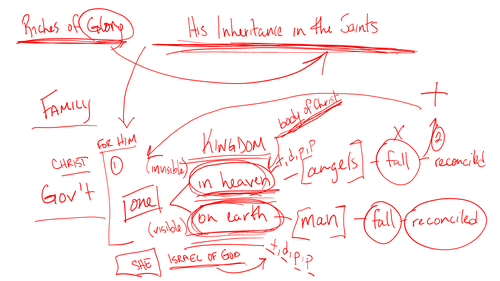 Riches of Glory
His Inheritance in the Saints
FAMILY
FOR HIM
CHRIST
Gov't
①
one
SHE
KINGDOM
body of Christ
(invisible)
in heaven
t, d, p, p
[angels]
X
fall
②
reconciled
(visible)
on earth
[man]
fall
reconciled
ISRAEL OF GOD
t, d, p, p